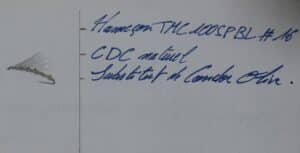 - Hameçon TMC 100SP BL # 16
- CDC naturel
- Substitut de Condor Olive.